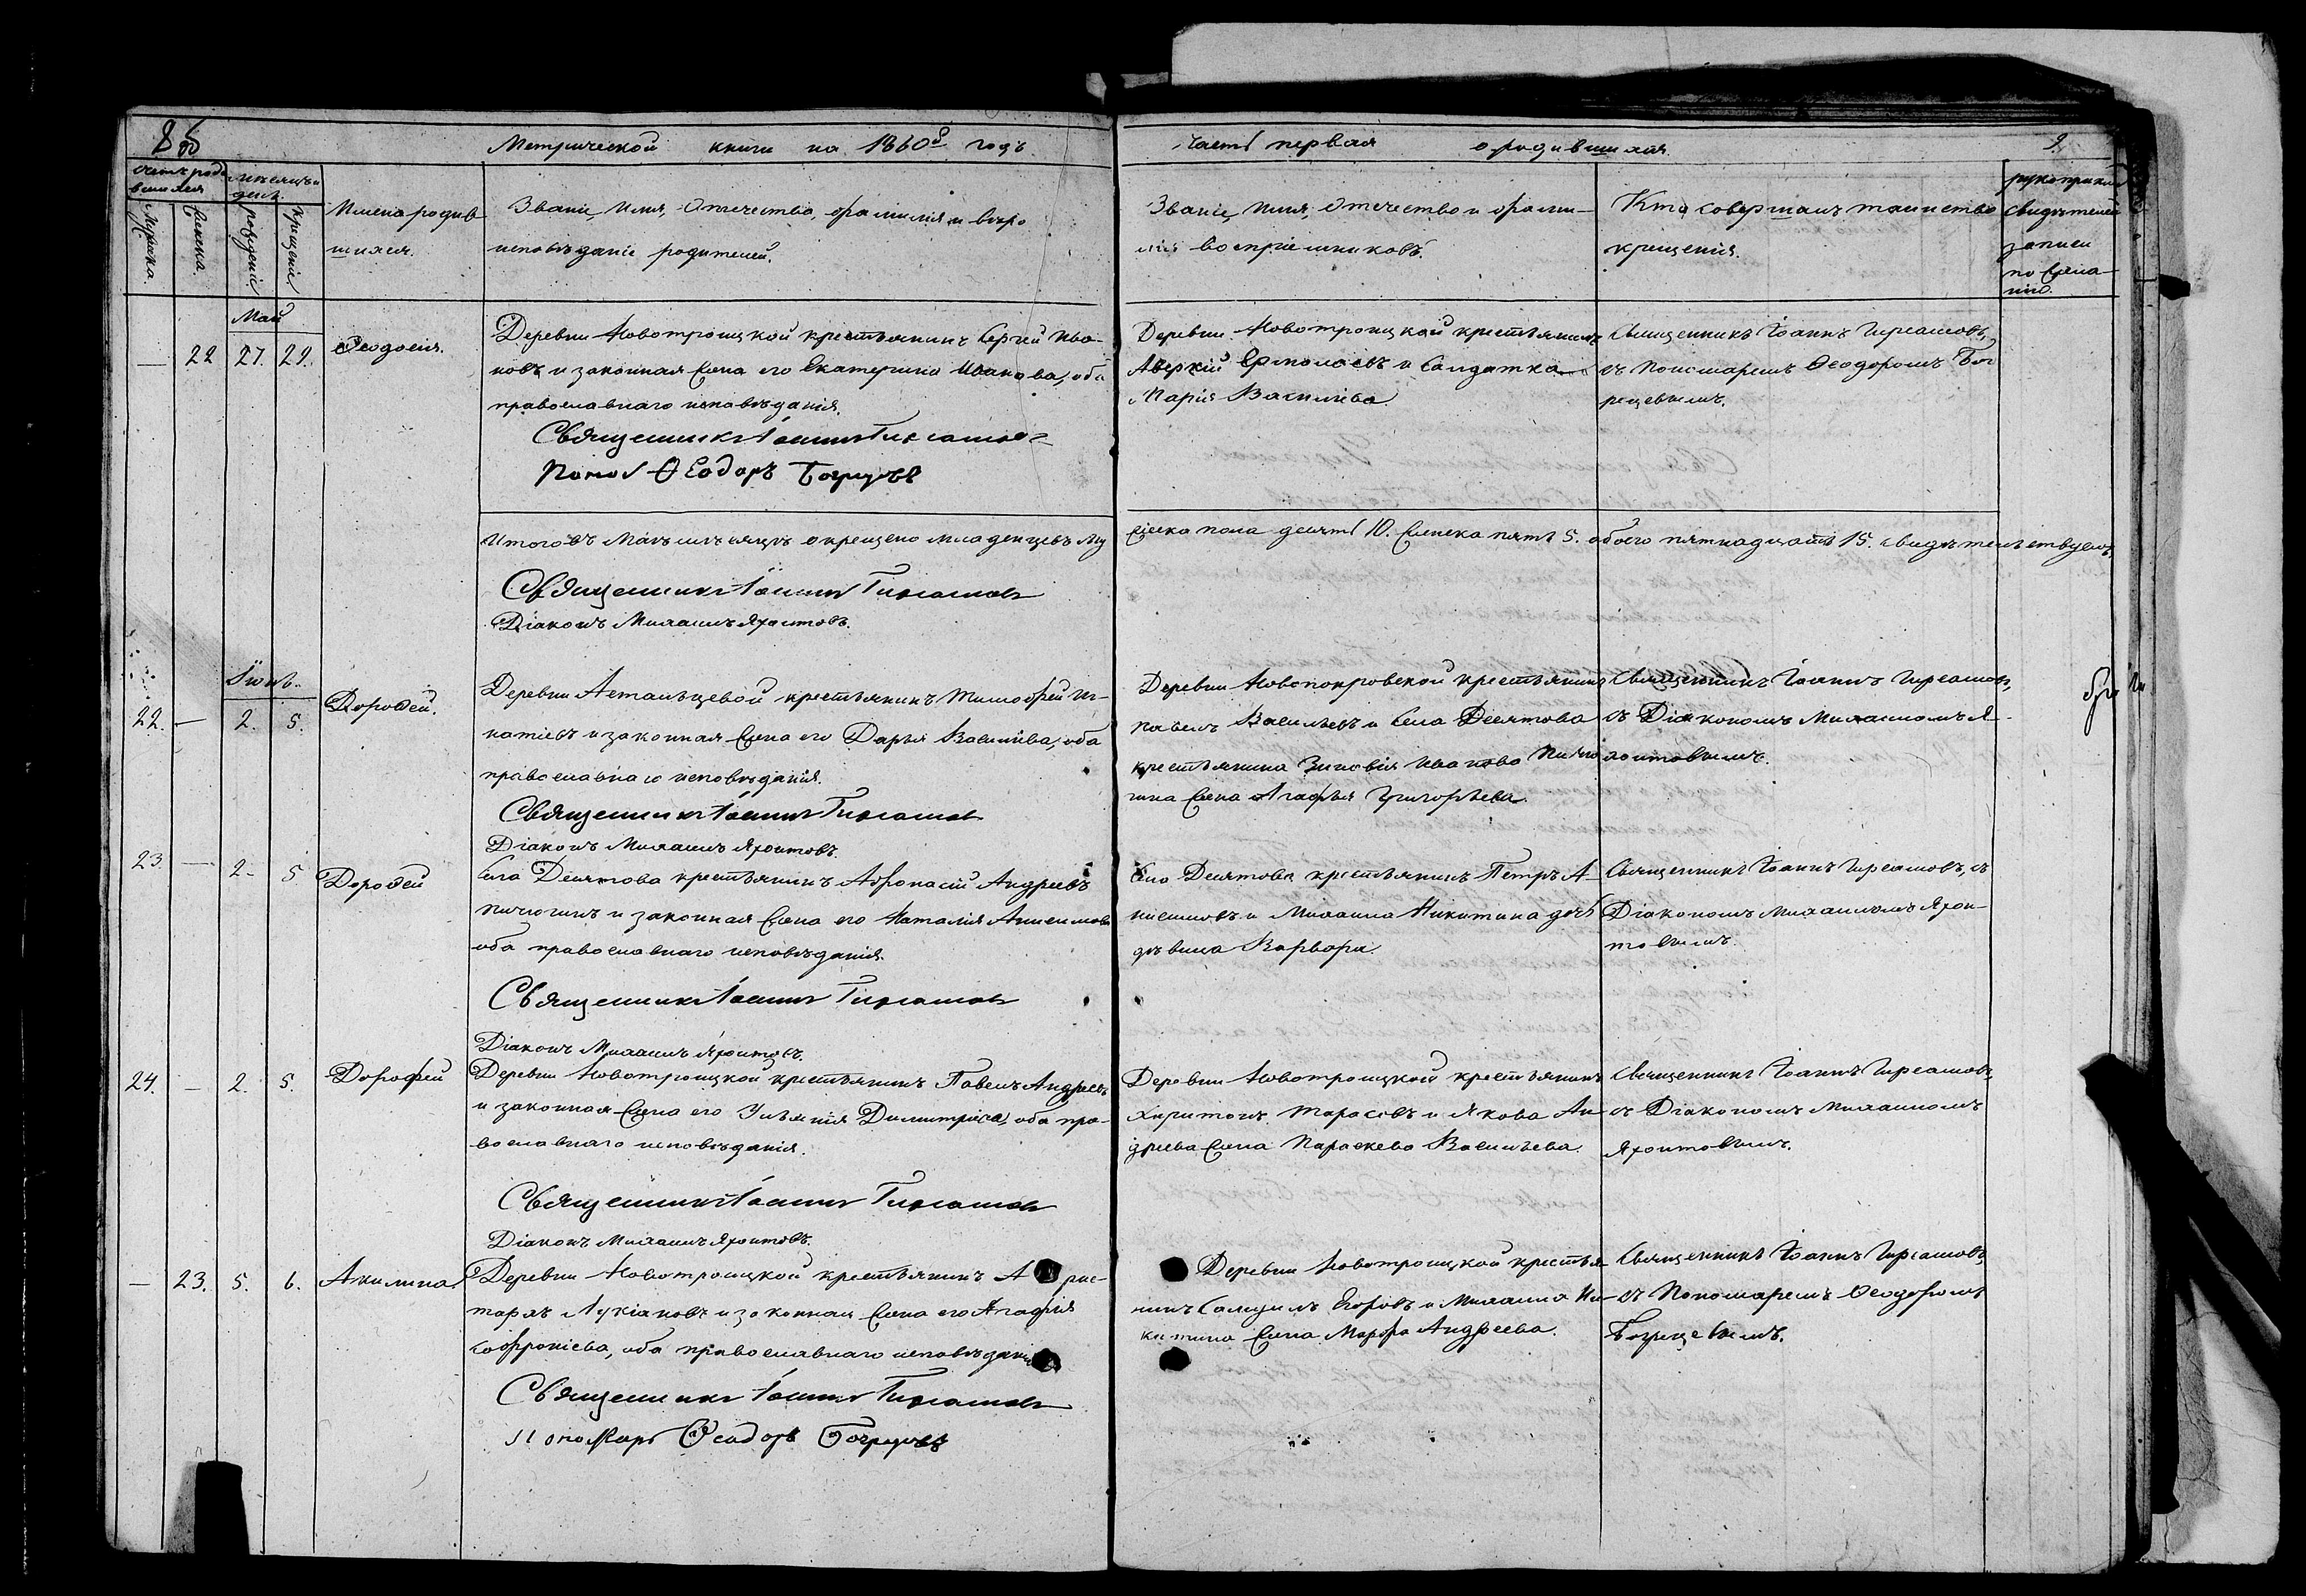 8 об
Метрической книги на 1860й годъ
Часть первая о родившихся
9.
Счетъ роди
вшихся
Мужеска.
Женска.
мѣсяцъ и
день.
рожденіе
крещеніе
Имена родив
шихся.
Званіе, Имя, Отечество, фамилія и вѣро
исповѣданіе родителей.
Званіе, Имя, Отечество и фами-
лія воспріемниковъ.
Кто совершалъ таинство
крещенія.
рукоприкла
свидѣтелей
записи
по жела-
нію.
Май
— 22 27. 29. Ѳеодосія.
Деревни Новотроицкой крестьянинъ Сергей Ива-
новъ и законная жена его Екатерина Иванова, оба
православнаго исповѣданія.
Священникъ Іоаннъ Гирсамовъ
Поном Ѳеодоръ
Деревни Новотроицкой крестьянинъ
Аверкій Ермолаевъ и Салдатка
Марія Василіева.
Священникъ Іоаннъ Гирсамовъ,
съ Пономаремъ Ѳеодоромъ Бог
рецевымъ.
Итого въ Маѣ мѣсяцѣ окрещено младенцевъ му
жеска пола десять 10. Женска пять 5. обоего пятнадцать 15. свидѣтельствуемъ,
Священникъ Іоаннъ Гирсамовъ
Діаконъ Михаилъ Яхонтовъ.
Іюнь.
22. — 2. 5. Дороѳей.
Деревни Астальцевой крестьянинъ Тимофей Иг-
натіевъ и законная жена его Дарья Василіева, оба
православнаго исповѣданія.
Священникъ Іоаннъ Гирсамовъ
Діаконъ Михаилъ Яхонтовъ.
Деревни Новопокровской крестьянинъ
Павелъ Васильевъ и Села Десятова
крестьянина Зиновія Иванова Пичю
гина жена Агафья Григорьева.
Священникъ Іоаннъ Гирсамовъ,
съ Діакономъ Михаиломъ Я-
хонтовымъ.
23. — 2. 5 Дороѳей
Села Десятова крестьянинъ Афонасій Андреевъ
Пичюгинъ и законная жена его Наталія Анисимова
оба православнаго исповѣданія.
Священникъ Іоаннъ Гирсамовъ
Діаконъ Михаилъ Яхонтовъ.
Села Десятова крестьянинъ Петръ А-
нисимовъ и Михаила Никитина дочь
дѣвица Варвара.
Священникъ Іоаннъ Гирсамовъ, съ
Діакономъ Михаиломъ Яхон-
товымъ.
24. — 2. 5. Дорофей
Деревни Новотроицкой крестьянинъ Павелъ Андреевъ
и законная жена его Ульянія Димитріева, оба пра-
вославнаго исповѣданія.
Священникъ Іоаннъ Гирсамовъ
Діаконъ Михаилъ Яхонтовъ.
Деревни Новотроицкой крестьянинъ
Харитонъ Тарасовъ и Якова Ан-
дреева жена Параскева Васильева.
Священникъ Іоаннъ Гирсамовъ,
съ Діакономъ Михаиломъ
Яхонтовымъ.
— 23. 5. 6. Акилина.
Деревни Новотроицкой крестьянинъ А рис-
тархъ Лукіановъ и законная жена его Агафія
Софроніева, оба православнаго исповѣдані
Священникъ Іоаннъ Гирсамовъ
Пономарь Ѳеодоръ
Деревни Новотроицкой крестья-
нинъ Самуилъ Егоровъ и Михаила Ни-
китина жена Марфа Андреева.
Священникъ Іоаннъ Гирсамовъ,
съ Пономаремъ Ѳеодоромъ
Богрецевымъ.